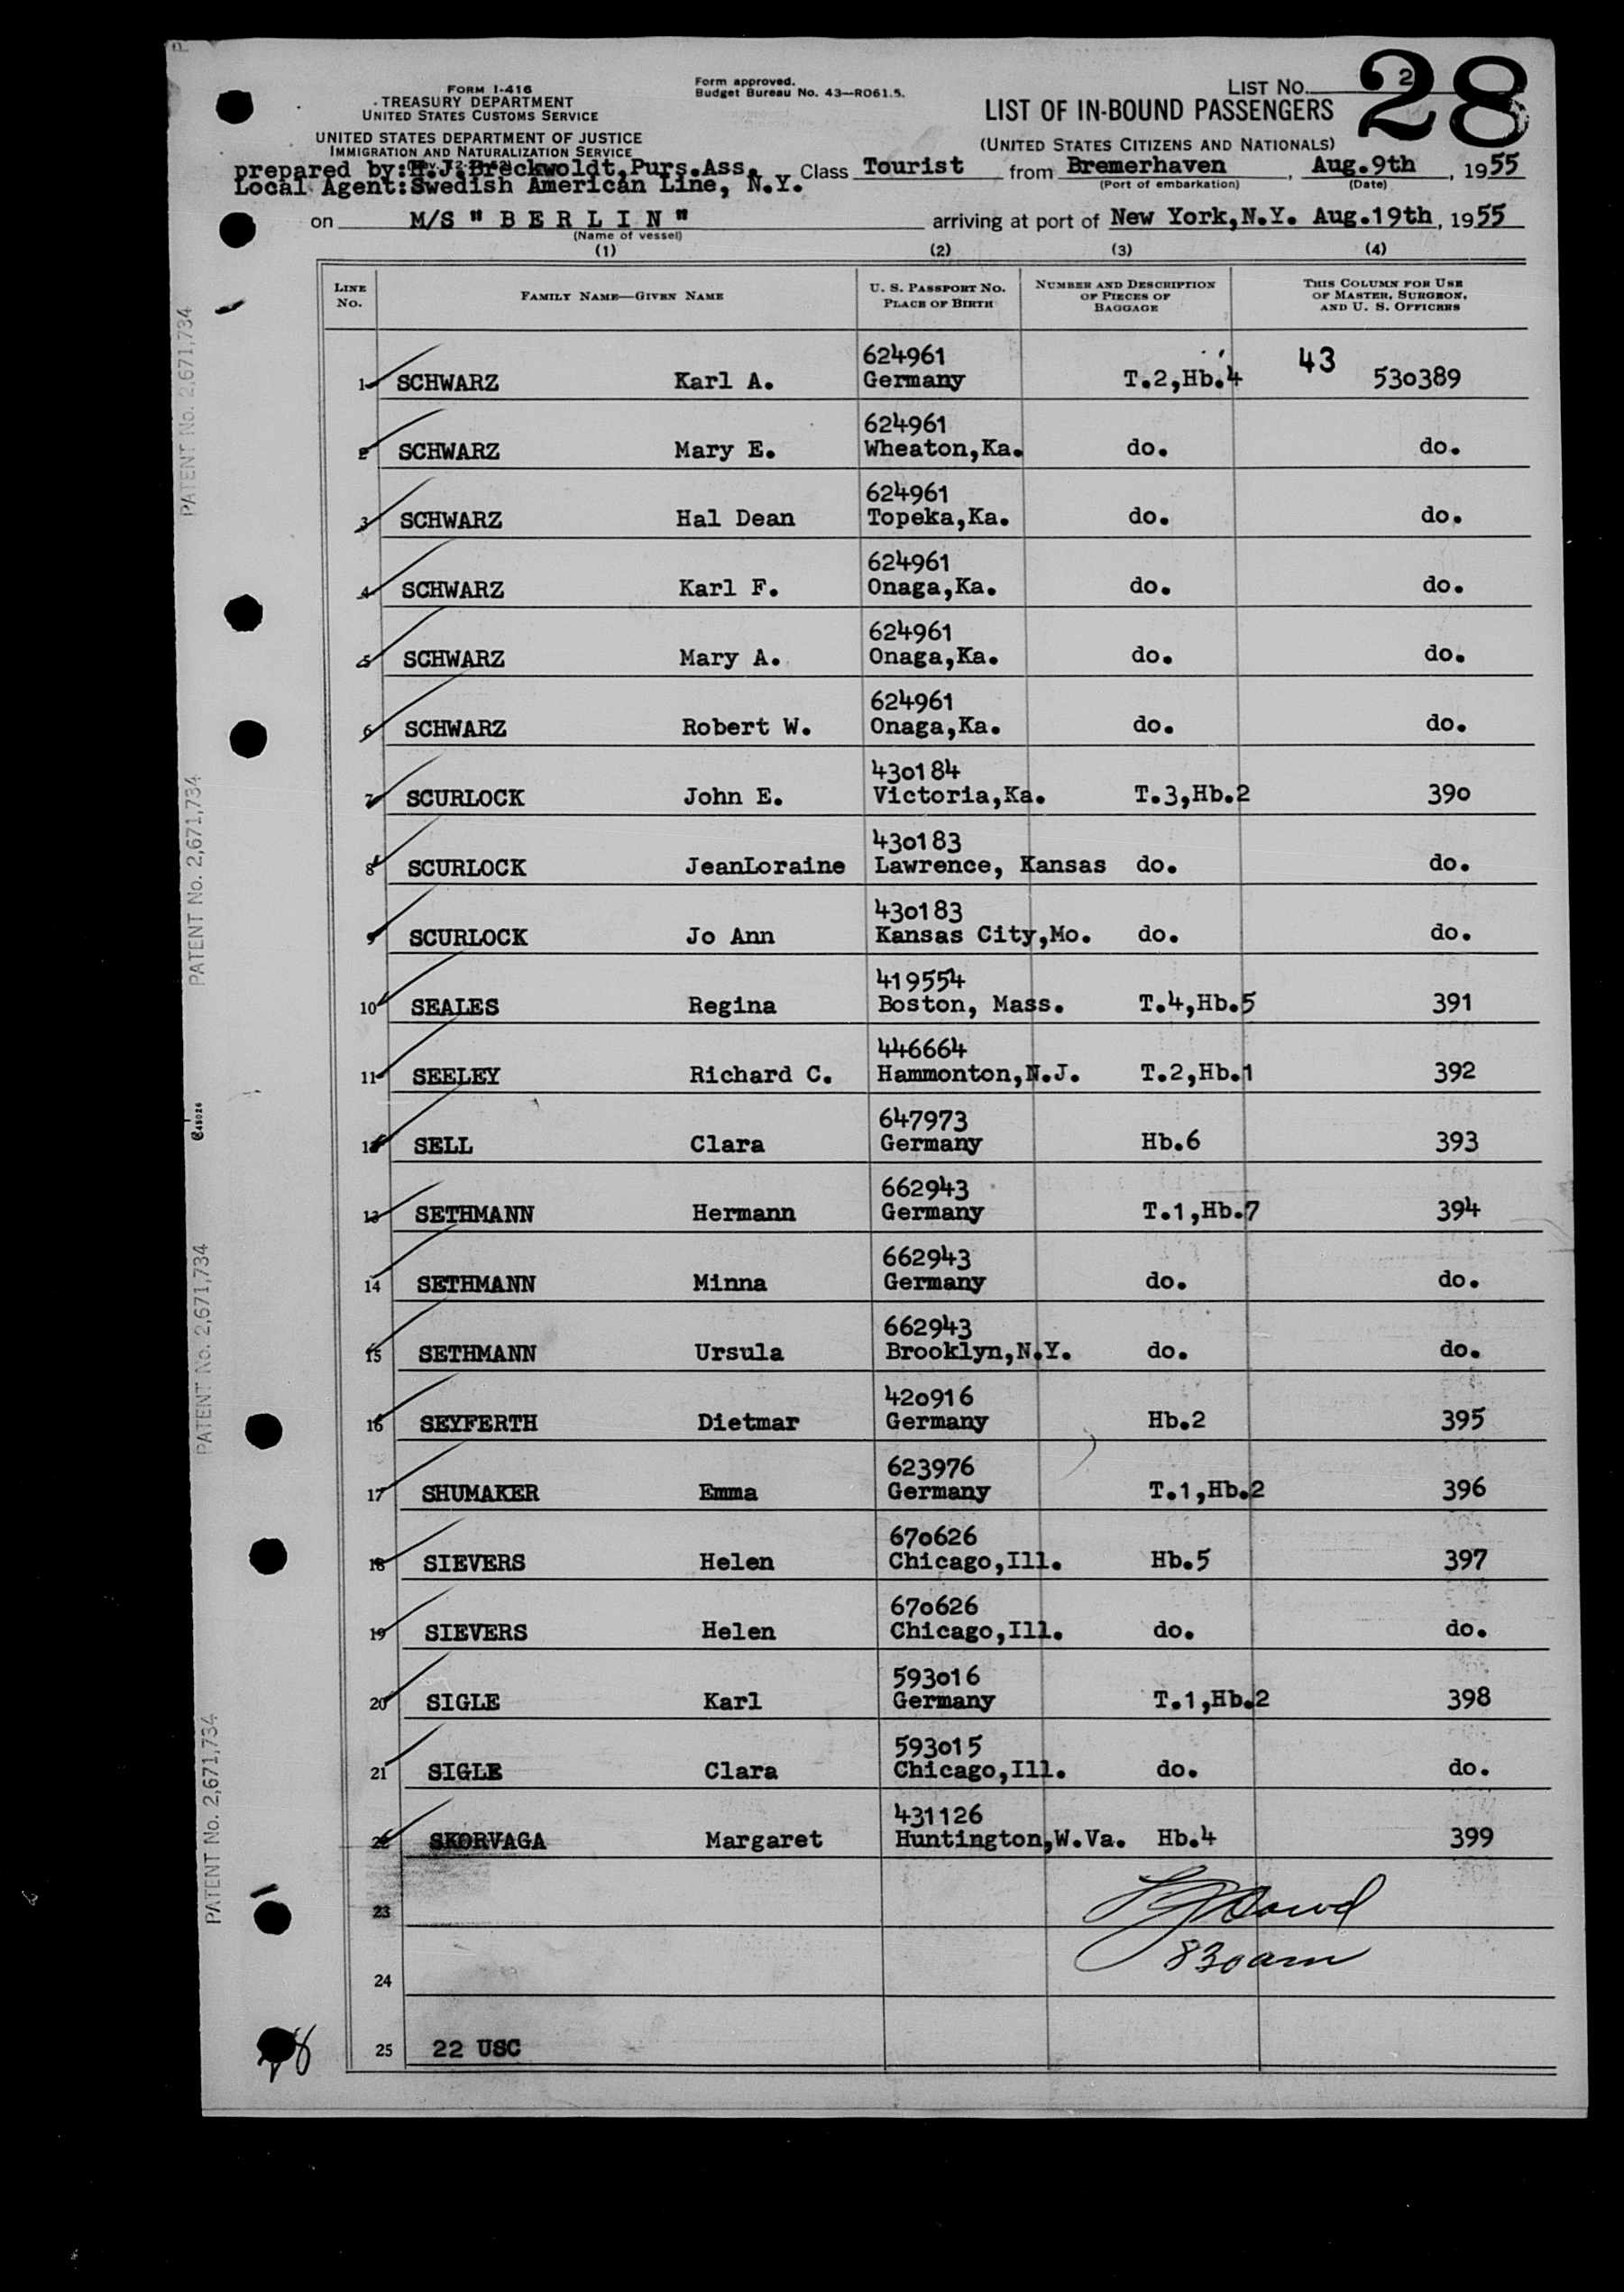 28
FORM I-416
TREASURY DEPARTMENT
UNITED STATES CUSTOMS SERVICE
UNITED STATES DEPARTMENT OF JUSTICE
IMMIGRATION AND NATURALIZATION SERVICE
Form approved.
Budget Bureau No. 43—RO61.5.
LIST No. 2
LIST OF IN-BOUND PASSENGERS
(UNITED STATES CITIZENS AND NATIONALS)
prepared by:H.J.Breckwoldt,Purs.Ass. Class Tourist from Bremerhaven, Aug.9th, 1955
(Port of embarkation) (Date)
Local Agent:Swedish American Line, N.Y.
on M/S " B E R L I N " arriving at port of New York,N.Y. Aug.19th, 1955
(Name of vessel)
(1) (2) (3) (4)
LINE No. FAMILY NAME—GIVEN NAME U. S. PASSPORT NO. PLACE OF BIRTH NUMBER AND DESCRIPTION OF PIECES OF BAGGAGE THIS COLUMN FOR USE OF MASTER, SURGEON, AND U. S. OFFICERS
624961 43
1 SCHWARZ Karl A. Germany T.2,Hb.4 530389
624961
2 SCHWARZ Mary E. Wheaton,Ka. do. do.
624961
3 SCHWARZ Hal Dean Topeka,Ka. do. do.
624961
4 SCHWARZ Karl F. Onaga,Ka. do. do.
624961
5 SCHWARZ Mary A. Onaga,Ka. do. do.
624961
6 SCHWARZ Robert W. Onaga,Ka. do. do.
430184
7 SCURLOCK John E. Victoria,Ka. T.3,Hb.2 390
430183
8 SCURLOCK JeanLoraine Lawrence, Kansas do. do.
430183
9 SCURLOCK Jo Ann Kansas City,Mo. do. do.
419554
10 SEALES Regina Boston, Mass. T.4,Hb.5 391
446664
11 SEELEY Richard C. Hammonton,N.J. T.2,Hb.1 392
647973
12 SELL Clara Germany Hb.6 393
662943
13 SETHMANN Hermann Germany T.1,Hb.7 394
662943
14 SETHMANN Minna Germany do. do.
662943
15 SETHMANN Ursula Brooklyn,N.Y. do. do.
420916
16 SEYFERTH Dietmar Germany Hb.2 395
623976
17 SHUMAKER Emma Germany T.1,Hb.2 396
670626
18 SIEVERS Helen Chicago,Ill. Hb.5 397
670626
19 SIEVERS Helen Chicago,Ill. do. do.
593016
20 SIGLE Karl Germany T.1,Hb.2 398
593015
21 SIGLE Clara Chicago,Ill. do. do.
431126
22 SKORVAGA Margaret Huntington,W.Va. Hb.4 399
23
830 am
24
25 22 USC
PATENT No. 2,671,734
PATENT No. 2,671,734
PATENT No. 2,671,734
PATENT No. 2,671,734